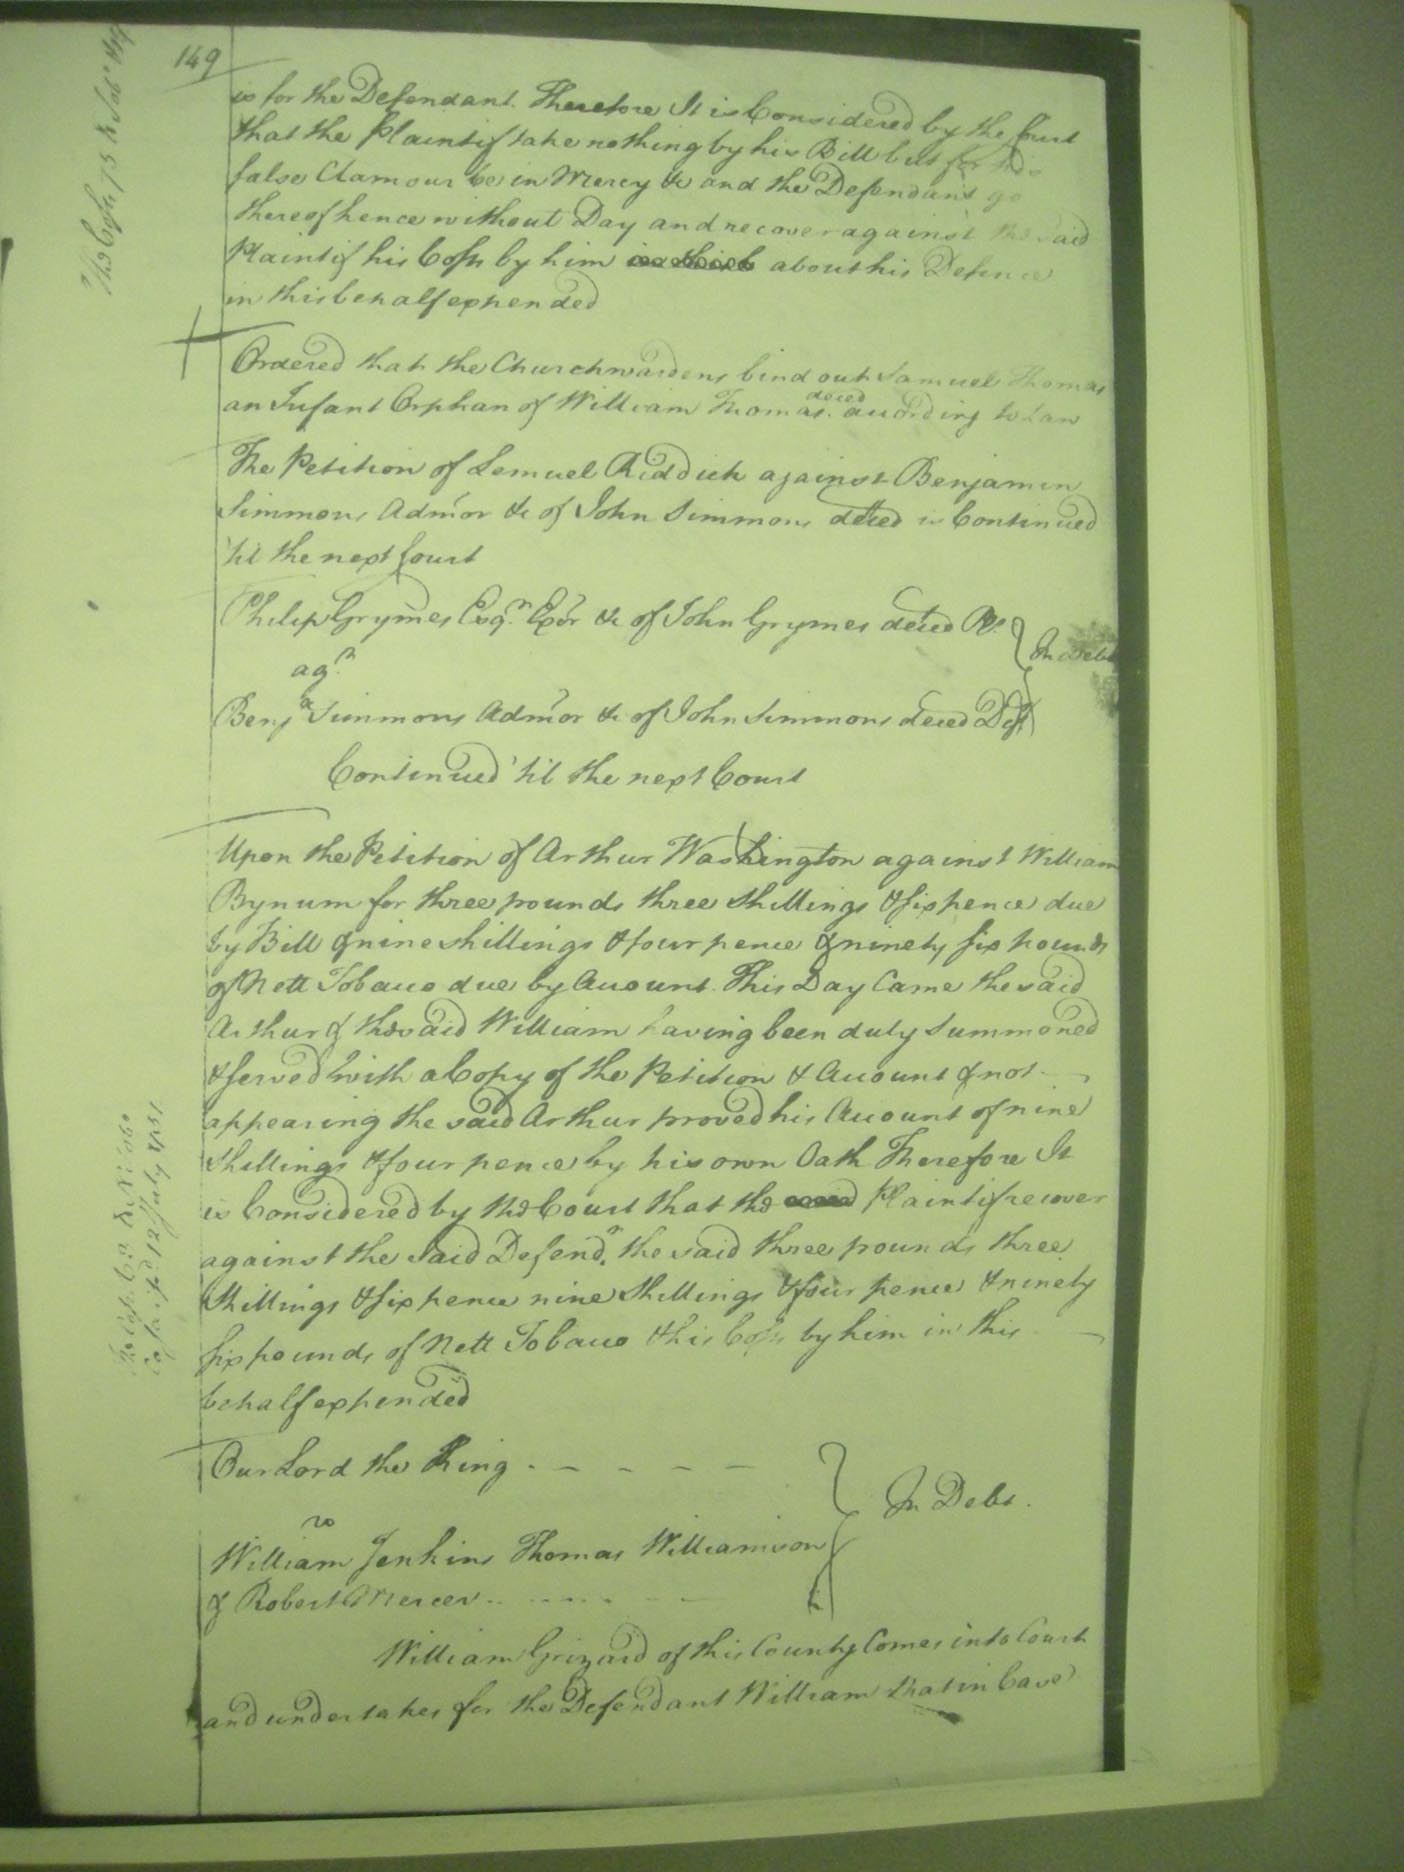 149
is for the Defendant. Therefore It is Considered by the Court
that the Plaintif take nothing by his Bill but for his
false Clamour be in Mercy &c and the Defendant go
thereof hence without Day and recover against the said
Plaintif his Costs by him about his Defence
in this behalf expended
Ordered that the Churchwardens bind out Samuel Thomas
an Infant Orphan of William Thomas deced according to Law
The Petition of Lemuel Riddick against Benjamin
Simmons Admor &c of John Simmons deced is Continued
'til the next Court
Philip Grymes Esqr. Exor &c of John Grymes deced Pl.
agt
In Debt
Benja Simmons Admor &c of John Simmons deced Deft
Continued 'til the next Court
Upon the Petition of Arthur Washington against William
Bynum for three pounds three Shillings & six pence due
by Bill & nine shillings & four pence & ninety six pounds
of Nett Tobacco due by Account. This Day Came the said
Arthur & the said William having been duly Summoned
& served with a Copy of the Petition & Account & not
appearing the said Arthur proved his Account of nine
Shillings & four pence by his own Oath Therefore It
is Considered by the Court that the Plaintif recover
against the Said Defendt. the said three pounds three
Shillings & six pence nine Shillings & four pence & ninety
six pounds of Nett Tobacco & his Costs by him in this
behalf expended
Our Lord the King
vs
In Debt.
William Jenkins Thomas Williamson
& Robert Mercer
William Grizard of this County Comes into Court
and undertakes for the Defendant William that in Case